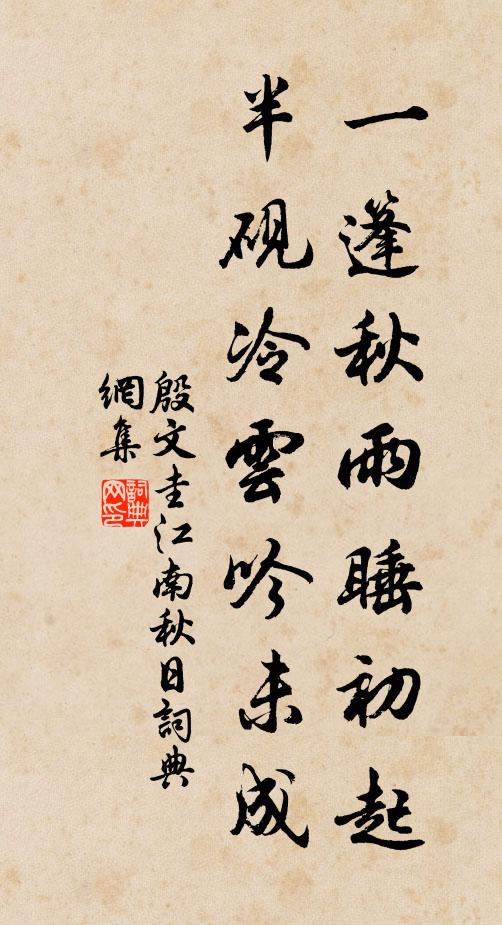 一篷秋雨睡初起
半硯冷雲吟未成
殷文圭江南秋日詞典
網集
詞典網印